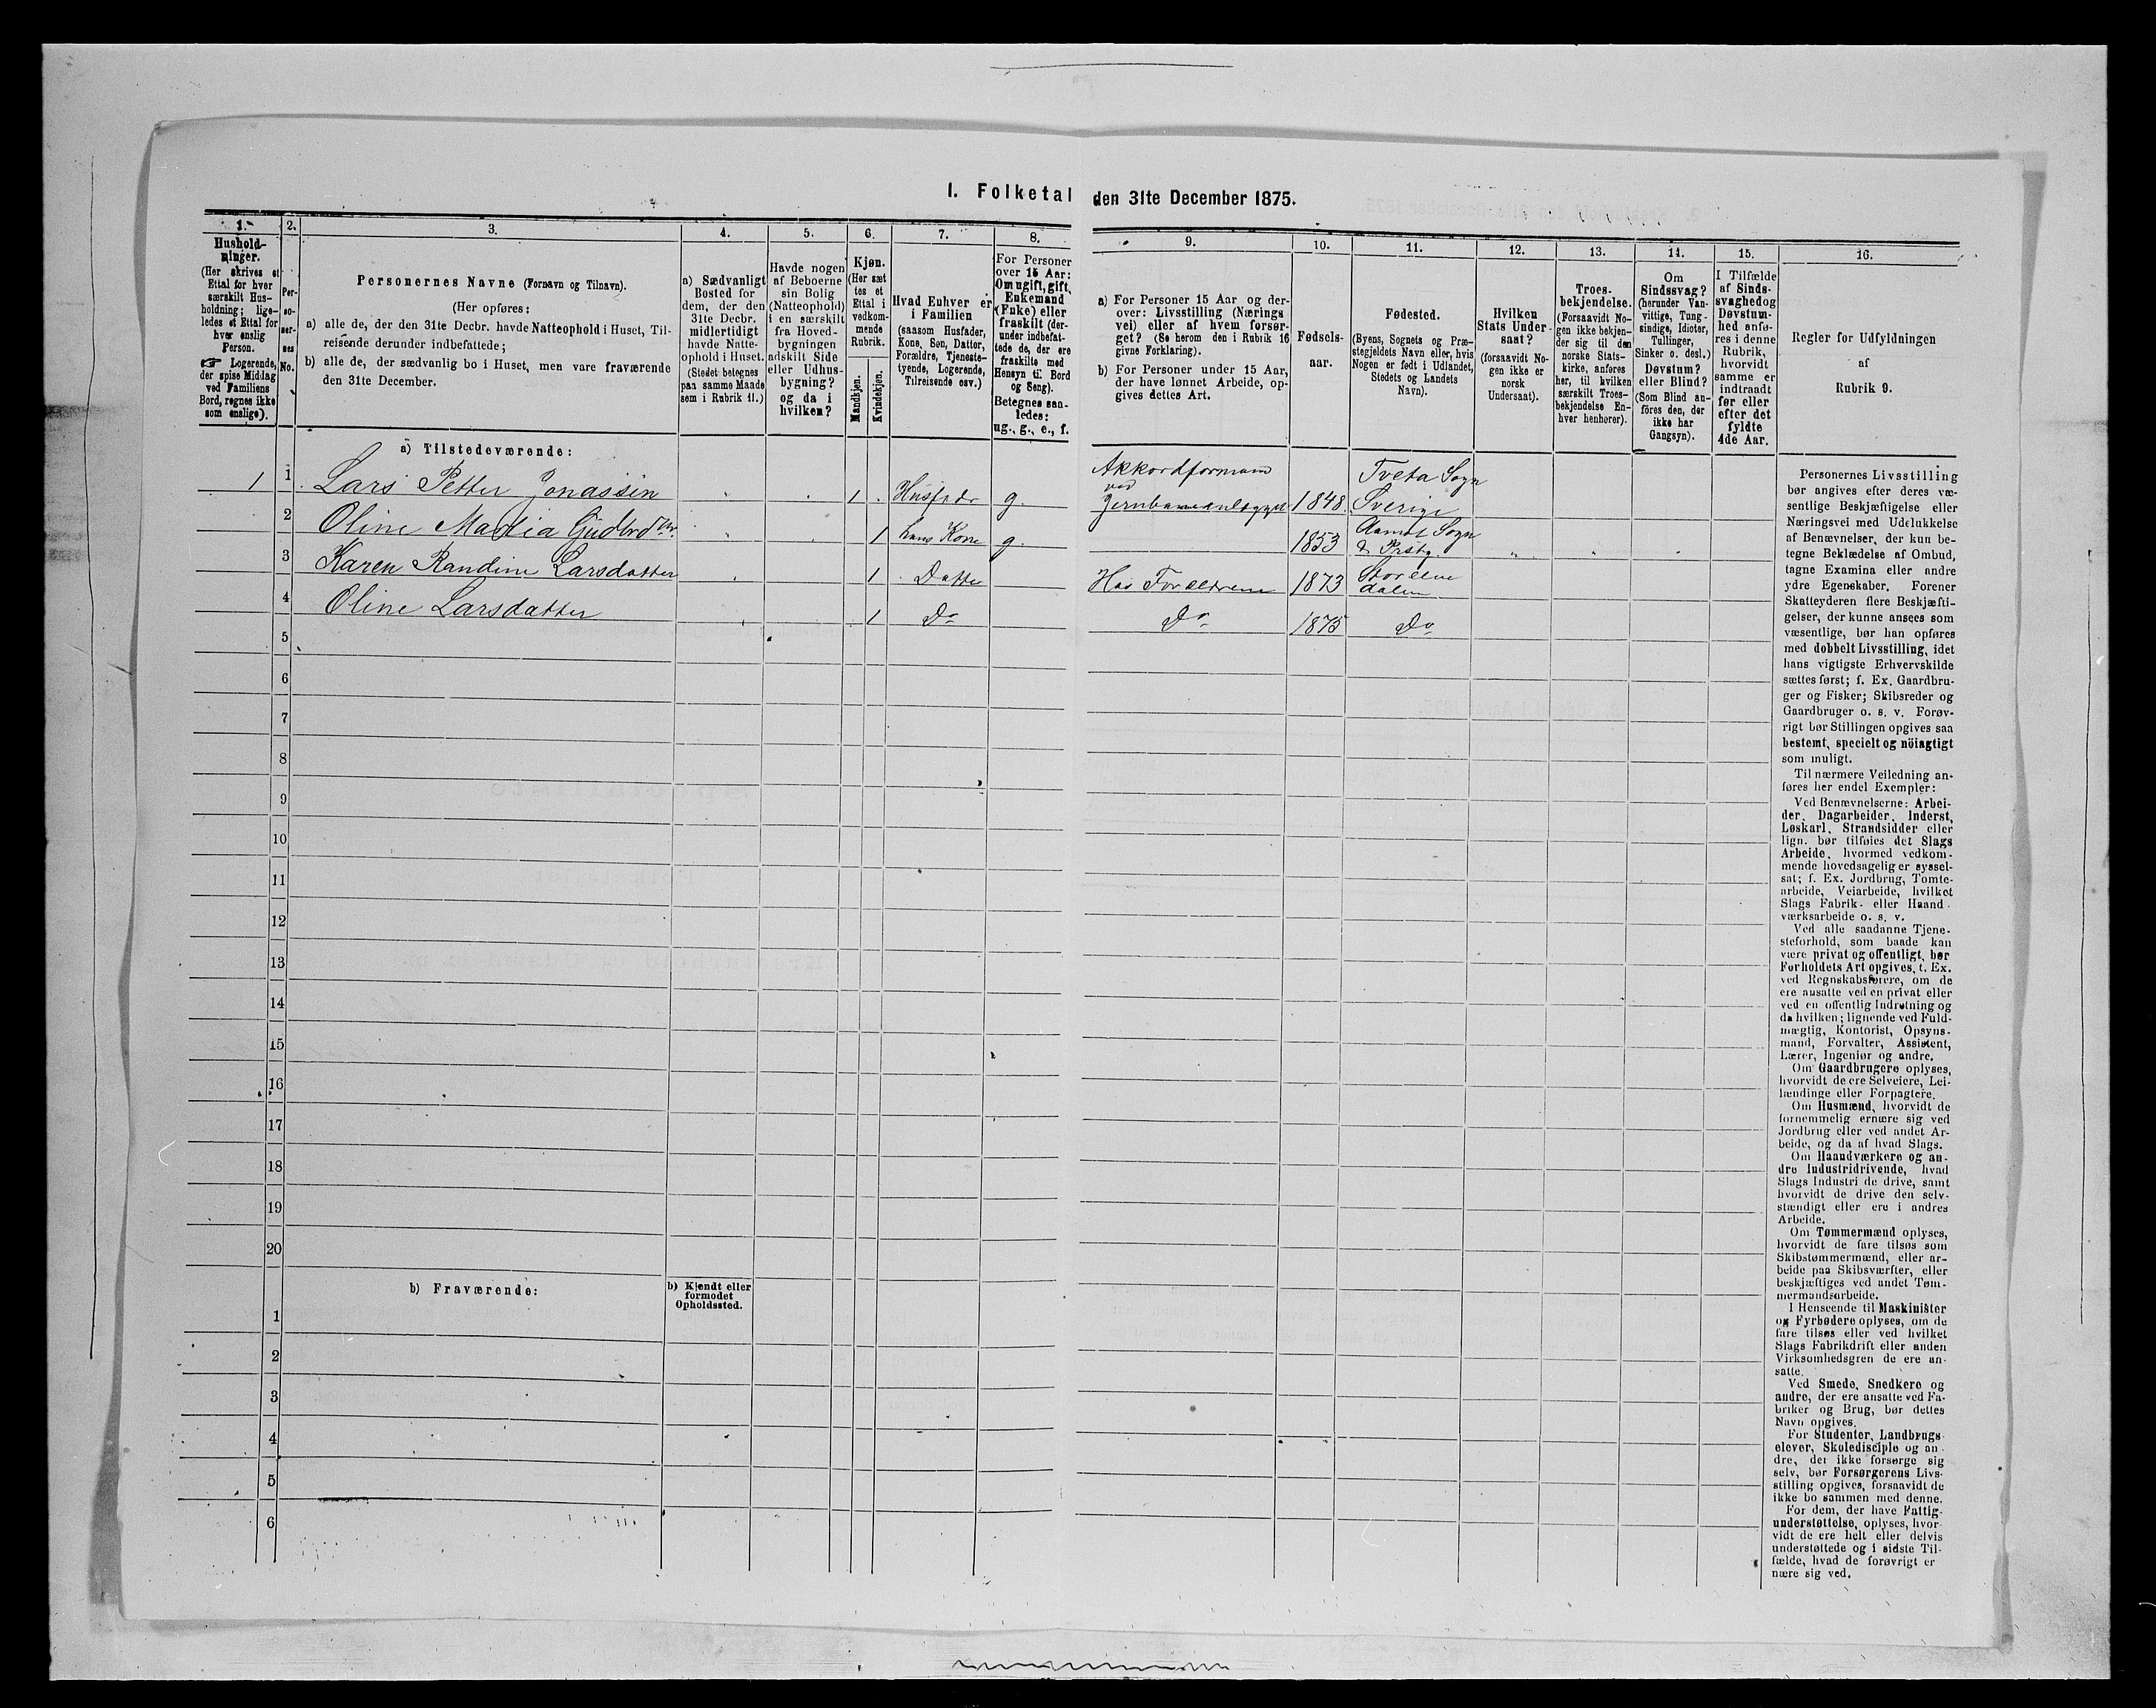 I. Folketal den 31te December 1875.
1.
Hushold-
ninger.
(Her skrives et
Ettal for hver
særskilt Hus-
holdning; lige-
ledes et Ettal for
hver enslig
Person.
☞ Logerende,
der spise Middag
ved Familiens
Bord, regnes ikke
som enslige).
2.
Per-
so-
ner-
nes
No.
3.
Personernes Navne (Fornavn og Tilnavn).
(Her opføres:
a) alle de, der den 31te Decbr. havde Natteophold i Huset, Til-
reisende derunder indbefattede;
b) alle de, der sædvanlig bo i Huset, men vare fraværende
den 31te December.
4.
a) Sædvanligt
Bosted for
dem, der den
31te Decbr.
midlertidigt
havde Natte-
ophold i Huset.
(Stedet betegnes
paa samme Maade
som i Rubrik 11.)
5.
Havde nogen
af Beboerne
sin Bolig
(Natteophold)
i en særskilt
fra Hoved-
bygningen
adskilt Side
eller Udhus-
bygning?
og da i
hvilken?
6.
Kjøn.
(Her sæt
tes et
Ettal i
vedkom-
mende
Rubrik.
Mandkjøn.
Kvindekjøn.
7.
Hvad Enhver er
i Familien
(saasom Husfader,
Kone, Søn, Datter,
Forældre, Tjeneste-
tyende, Logerende,
Tilreisende osv.)
8.
For Personer
over 15 Aar:
Om ugift, gift,
Enkemand
(Enke) eller
fraskilt (der-
under indbefat-
tede de, der ere
fraskilte med
Hensyn til Bord
og Seng).
Betegnes saa-
ledes:
ug., g., e., f.
9.
a) For Personer 15 Aar og der-
over: Livsstilling (Nærings
vei) eller af hvem forsør-
get? (Se herom den i Rubrik 16
givne Forklaring).
b) For Personer under 15 Aar,
der have lønnet Arbeide, op-
gives dettes Art.
10.
Fødsels-
aar.
11.
Fødested.
(Byens, Sognets og Præ-
stegjeldets Navn eller, hvis
Nogen er født i Udlandet,
Stedets og Landets
Navn).
12.
Hvilken
Stats Under-
saat?
(forsaavidt No-
gen ikke er
norsk
Undersaat).
13.
Troes-
bekjendelse.
(Forsaavidt No-
gen ikke bekjen-
der sig til den
norske Stats-
kirke, anføres
her, til hvilken
særskilt Troes-
bekjendelse En-
hver henhører).
14.
Om
Sindssvag?
(herunder Van-
vittige, Tung-
sindige, Idioter,
Tullinger,
Sinker o. desl.)
Døvstum?
eller Blind?
(Som Blind an-
föres den, der
ikke har
Gangsyn).
15.
I Tilfælde
af Sinds-
svaghed og
Døvstum-
hed anfø-
res i denne
Rubrik,
hvorvidt
samme er
indtraadt
før eller
efter det
fyldte
4de Aar.
16.
Regler for Udfyldningen
af
Rubrik 9.
a) Tilstedeværende:
1 1 Lars Petter Jonassen 1 Husfadr g. Akkordformann ved Jernbaneanlegget 1848 Tveta Sogn Sverige
2 Oline Mathia Gudbrdtr. 1 hans Kone g. 1853 Aamot Sogn & Prstg.
3 Karen Randine Larsdatter 1 Datter Hos Forældrene 1873 Storelvedalen
4 Oline Larsdatter 1 Do Do 1875 Do
5
6
7
8
9
10
11
12
13
14
15
16
17
18
19
20
b) Fraværende:
b) Kjendt eller
formodet
Opholdssted.
1
2
3
4
5
6
Personernes Livsstilling
bør angives efter deres væ-
sentlige Beskjæftigelse eller
Næringsvei med Udelukkelse
af Benævnelser, der kun be-
tegne Beklædelse af Ombud,
tagne Examina eller andre
ydre Egenskaber. Forener
Skatteyderen flere Beskjæfti-
gelser, der kunne ansees som
væsentlige, bør han opføres
med dobbelt Livsstilling, idet
hans vigtigste Erhvervskilde
sættes først; f. Ex. Gaardbru-
ger og Fisker; Skibsreder og
Gaardbruger o. s. v. Forøv-
rigt bør Stillingen opgives saa
bestemt, specielt og nöiagtigt
som muligt.
Til nærmere Veiledning an-
føres her endel Exempler:
Ved Benævnelserne: Arbei-
der, Dagarbeider, Inderst,
Løskarl, Strandsidder eller
lign. bør tilføies det Slags
Arbeide, hvormed vedkom-
mende hovedsagelig er syssel-
sat; f. Ex. Jordbrug, Tomte-
arbeide, Veiarbeide, hvilket
Slags Fabrik- eller Haand-
værksarbeide o. s. v.
Ved alle saadanne Tjene-
steforhold, som baade kan
være privat og offentligt, bør
Forholdets Art opgives, t. Ex.
ved Regnskabsførere, om de
ere ansatte ved en privat eller
ved en offentlig Indretning og
da hvilken; lignende ved Fuld-
mægtig, Kontorist, Opsyns-
mand, Forvalter, Assistent,
Lærer, Ingeniør og andre.
Om Gaardbrugere oplyses,
hvorvidt de ere Selveiere, Lei-
lændinge eller Forpagtere.
Om Husmænd, hvorvidt de
fornemmelig ernære sig ved
Jordbrug eller ved andet Ar-
beide, og da af hvad Slags.
Om Haandværkere og an-
dre Industridrivende, hvad
Slags Industri de drive, samt
hvorvidt de drive den selv-
stændigt eller ere i andres
Arbeide.
Om Tømmermænd oplyses,
hvorvidt de fare tilsøs som
Skibstømmermænd, eller ar-
beide paa Skibsværfter, eller
beskjæftiges ved andet Tøm-
mermandsarbeide.
I Henseende til Maskinister
og Fyrbødere oplyses, om de
fare tilsøs eller ved hvilket
Slags Fabrikdrift eller anden
Virksomhedsgren de ere an-
satte.
Ved Smede, Snedkere og
andre, der ere ansatte ved Fa-
briker og Brug, bør dettes
Navn opgives.
For Studenter, Landbrugs-
elever, Skoledisciple og an-
dre, der ikke forsørge sig
selv, bør Forsørgerens Livs-
stilling opgives, forsaavidt de
ikke bo sammen med denne.
For dem, der have Fattig-
understøttelse, oplyses, hvor-
vidt de ere helt eller delvis
understøttede og i sidste Til-
fælde, hvad de forøvrigt er
nære sig ved.